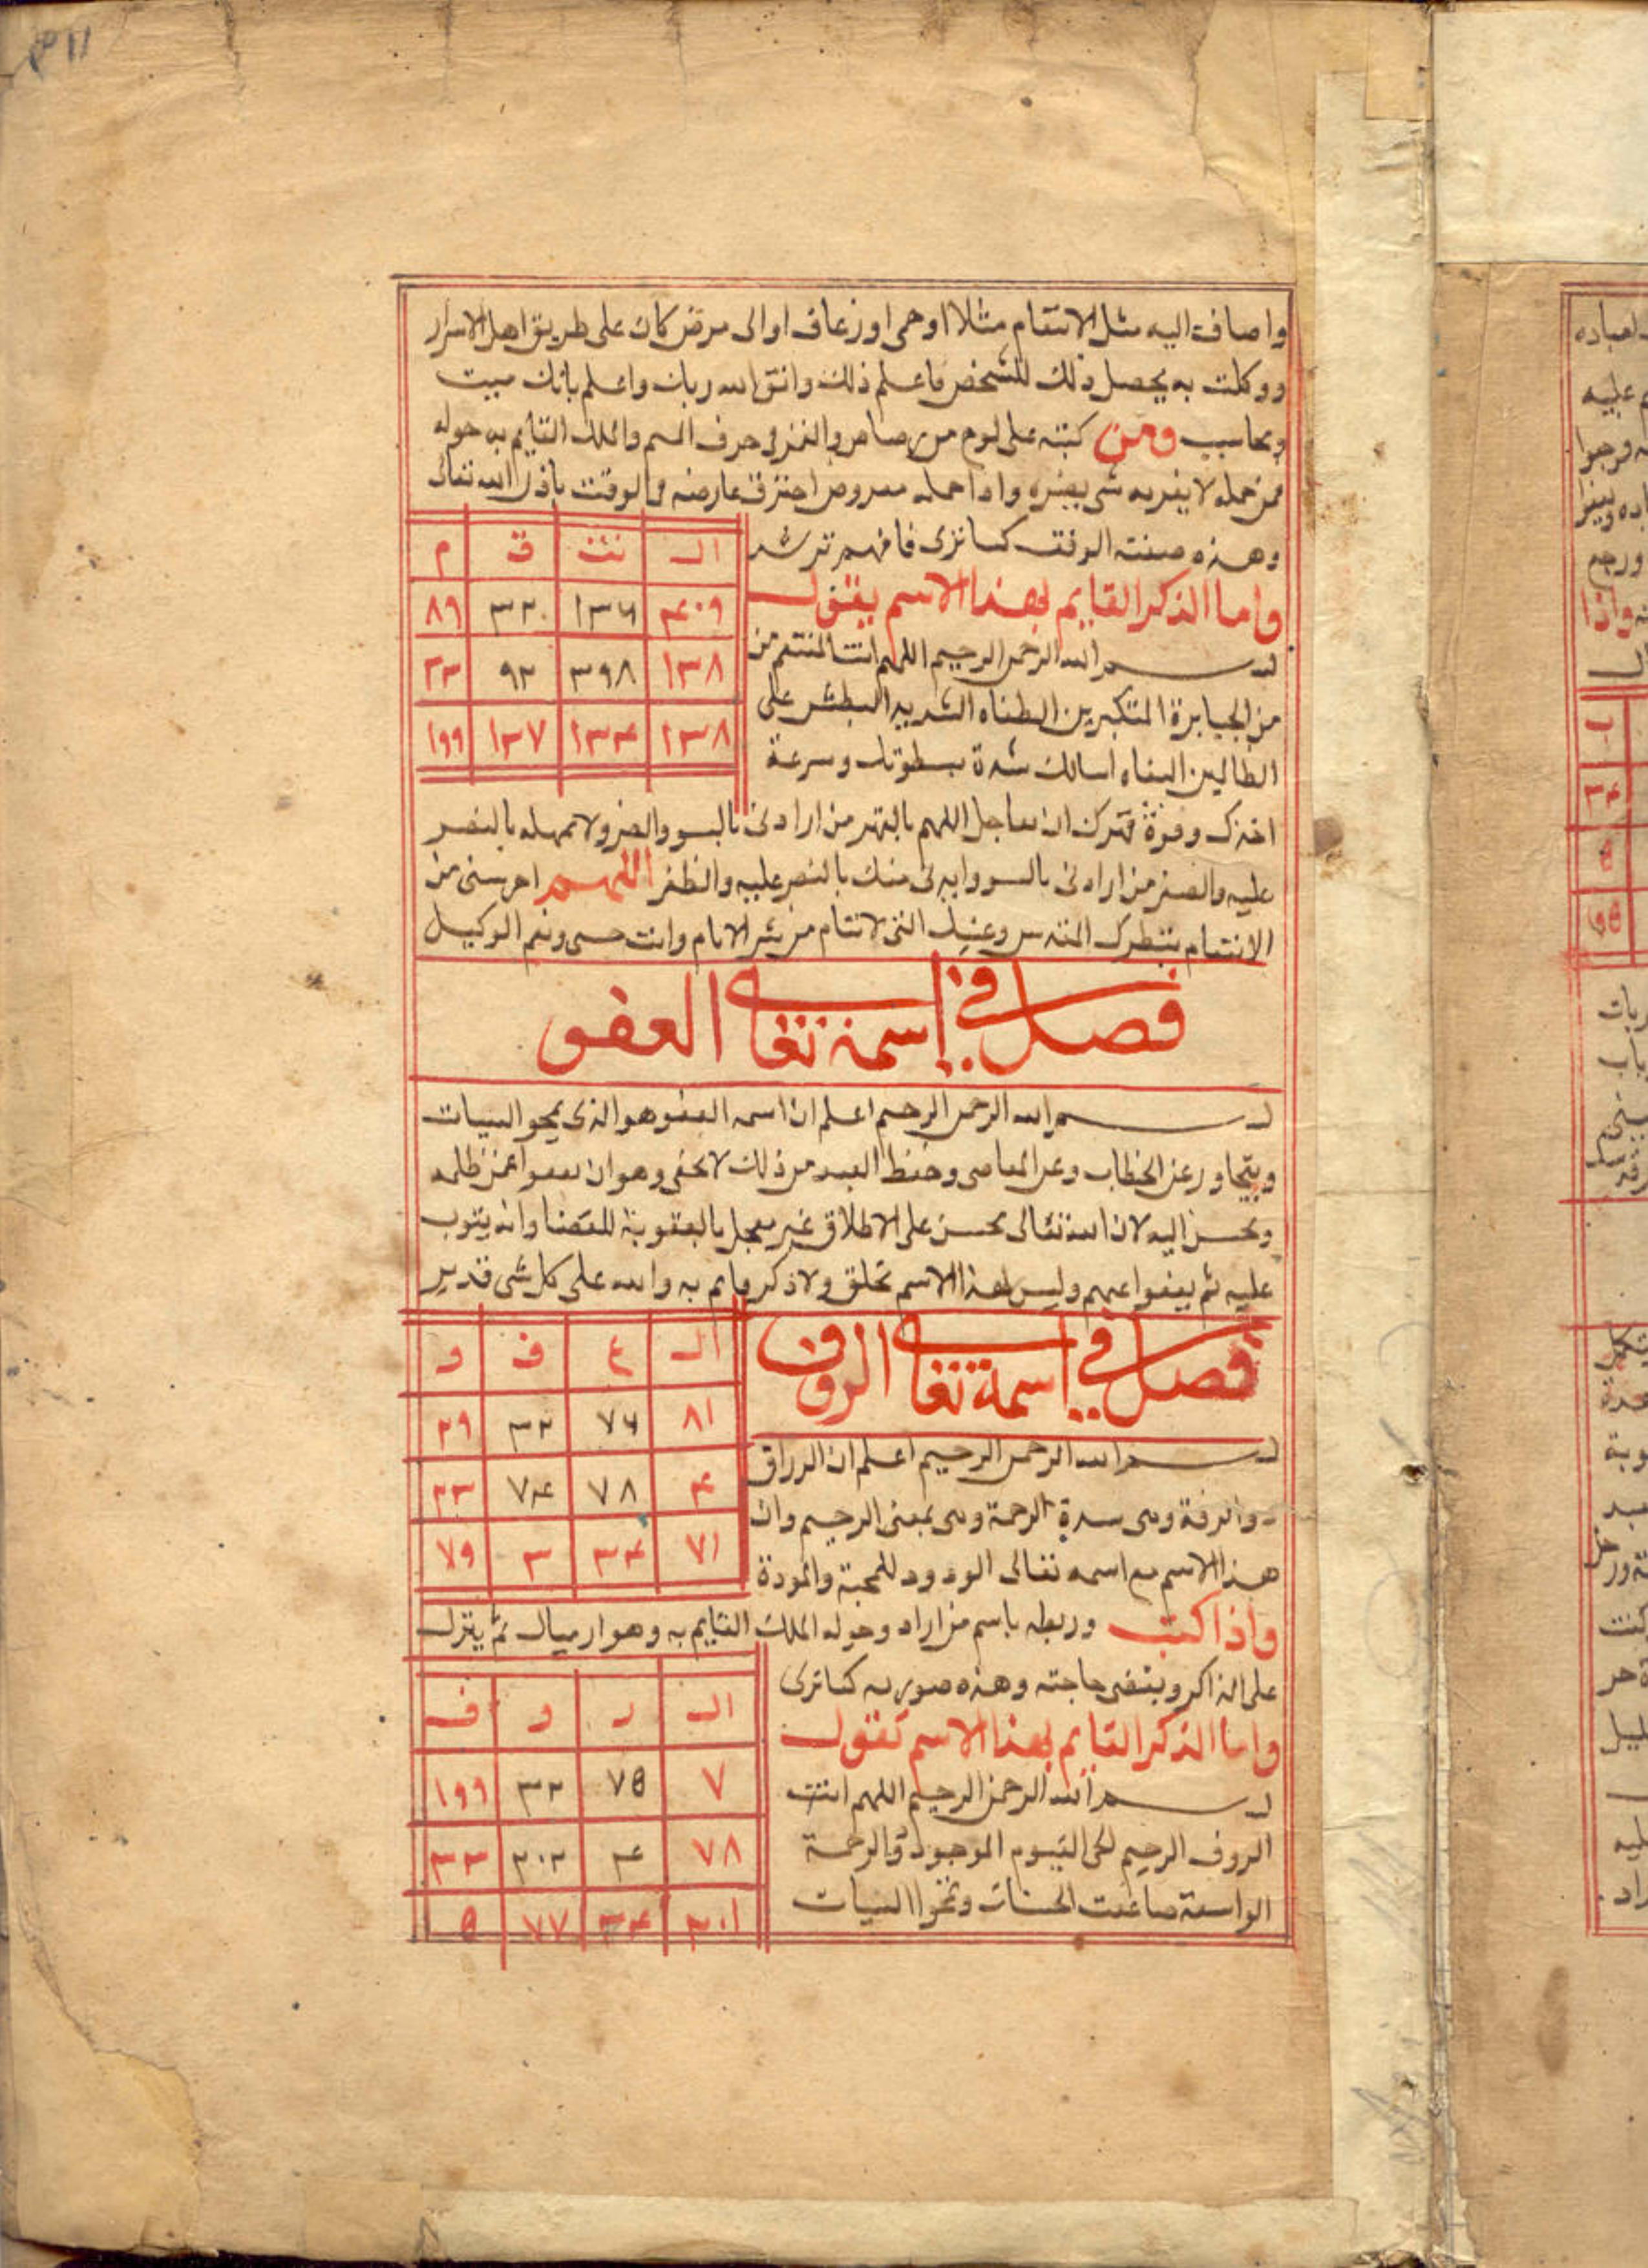 واضاف اليه مثل الانتقام مثلا او حمى او زعاف او الى مرض كان على طريق اهل الاسرار
ووكلت به يحصل ذلك للشخص فاعلم ذلك واتق الله ربك واعلم بانك ميت
ومحاسب ومن كتبه على لوح من رصاص والقمر في حرف السم والملك القايم به حوله
فمن حمله لا يقربه شي يضره واذا حمله معروض احترق عارضه في الوقت باذن الله تعالى
وهذه صفته الوفق كما ترى فافهم ترشد
ال نت ق م
٤٠٩ ١٣٦ ٣٢ ٨٩
١٣٨ ٣٩٨ ٩٢ ٣٣
١٣٨ ١٣٤ ١٣٧ ١٩٩
واما الذكر القايم بهذا الاسم يقول
بسم الله الرحمن الرحيم اللهم انت المنتقم من
من الجبابرة المتكبرين الطغاه الشديد البطش على
الظالمين البغاه اسالك شدة سطوتك وسرعة
اخذك وقوة قهرك ان تعاجل اللهم بالقهر من ارادني بالسو والضر ولا تمهله بالنصر
عليه والضر من ارادني بالسو وايدني منك بالنصر عليه والظفر اللهم احرسني من
الانتقام بنظرك وعينك التي لا تنام من شر الانام وانت حسبي ونعم الوكيل
فصل في اسمه تعالى العفو
بسم الله الرحمن الرحيم اعلم ان اسمه العفو هو الذي يمحو السيات
ويتجاوز عن الخطاب وعن المعاصي وحفظ العبد من ذلك لا يخفى وهو ان يعفوا عمن ظلمه
ويحسن اليه لان الله تعالى محسن على الاطلاق غير معجل بالعقوبة للعصا وانه يتوب
عليه ثم يعفوا عنهم وليس لهذا الاسم تخلق ولا ذكر قايم به والله على كل شي قدير
ال ع ف و
٨١ ٧٦ ٣٢ ٢٩
٤ ٧٨ ٧٤ ٣٣
٧١ ٣٤ ٣ ٧٩
فصل في اسمه تعالى الروف
بسم الله الرحمن الرحيم اعلم ان الرزاق
والرفة وهى سدة الرحمة وهى بمعنى الرحيم وان
هذا الاسم مع اسمه تعالى الودود للمحبة والمودة
واذا كتب وربطه باسم من اراد وحوله الملك القايم به وهو ارميال ثم ينزل
على الذاكر ويقضى حاجته وهذه صورته كما ترى
ال ر و ف
٧ ٧٥ ٣٢ ١٩٩
٧٨ ٤ ٢٠٢ ٣٣
٢٠١ ٣٤ ٧٧ ٥
واما الذكر القايم بهذا الاسم تقول
بسم الله الرحمن الرحيم اللهم انت
الروف الرحيم الحى القيوم الموجود والرحمة
الواسعة ضاعت الحسنات وتمحوا السيات